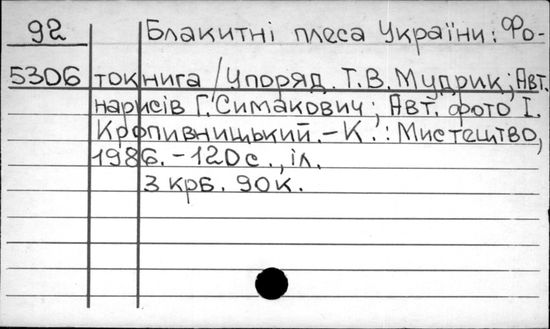 92 Блакитні плеса України: Фо-
5306 токнига / Упоряд. Т.В. Мудрик; Авт.
нарисів Г. Симакович; Авт. фото І.
Кропивницький. – К.: Мистецтво,
1986. – 120 с., іл.
3 крб. 90 к.